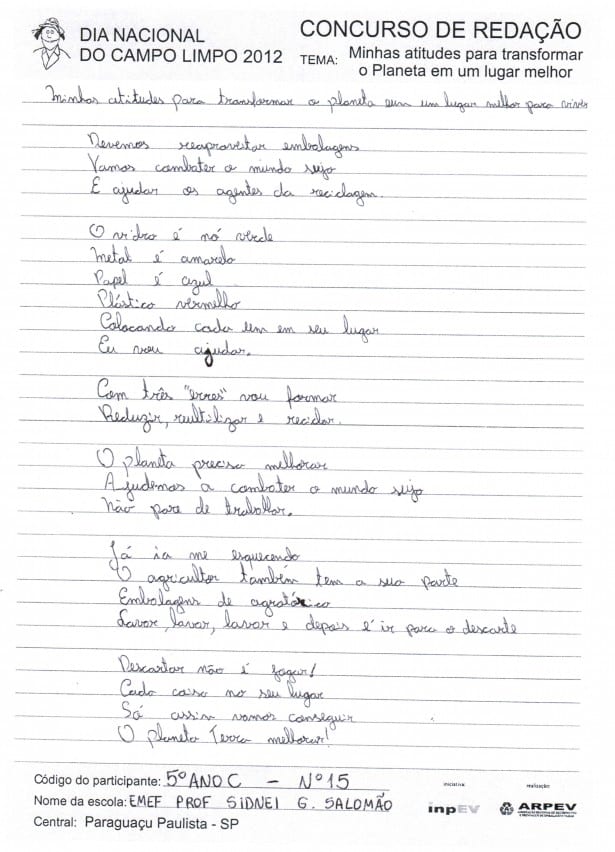 DIA NACIONAL
DO CAMPO LIMPO 2012
CONCURSO DE REDAÇÃO
TEMA: Minhas atitudes para transformar
o Planeta em um lugar melhor
Minhas atitudes para transformar o planeta eum um lugar melhor para viver
Devemos reaproveitar embalagens
Vamos combater o mundo sujo
E ajudar os agentes da reciclagem.
O vidro é nó verde
Metal é amarelo
Papel é azul
Plástico vermelho
Colocando cada um em seu lugar
Eu vou ajudar.
Com três "erres" vou formar
Reduzir, reultilizar e reciclar.
O planeta precisa melhorar
Ajudemos a combater o mundo sujo
Não pare de trabalhar.
Já ia me esquecendo
O agricultor também tem a sua parte
Embalagens de agrotóxico
Lavar, lavar, lavar e depois é ir para o descarte
Descartar não é jogar!
Cada coisa no seu lugar
Só assim vamos conseguir
O planeta Terra melhorar!
Código do participante: 5º ANO C - Nº 15
Nome da escola: EMEF PROF SIDNEI G. SALOMÃO
Central: Paraguaçu Paulista - SP
iniciativa:
inpEV
realização:
ARPEV